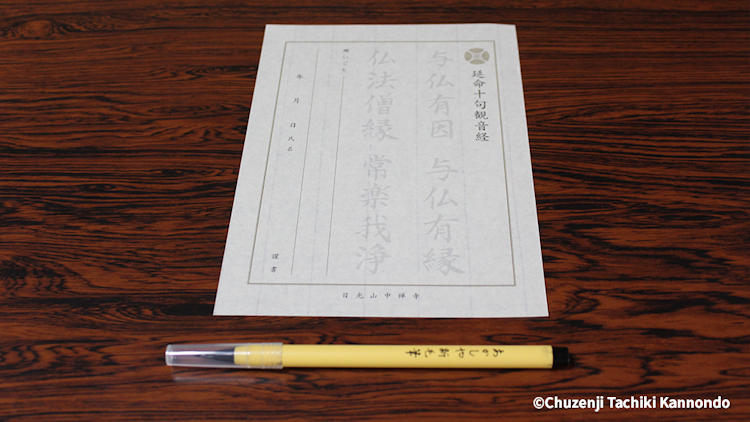 延命十句観音経
与仏有因 与仏有縁
仏法僧縁 常楽我浄
願いごと
年 月 日 氏名
謹書
日光山中禅寺
あかしや新毛筆
©Chuzenji Tachiki Kannondo